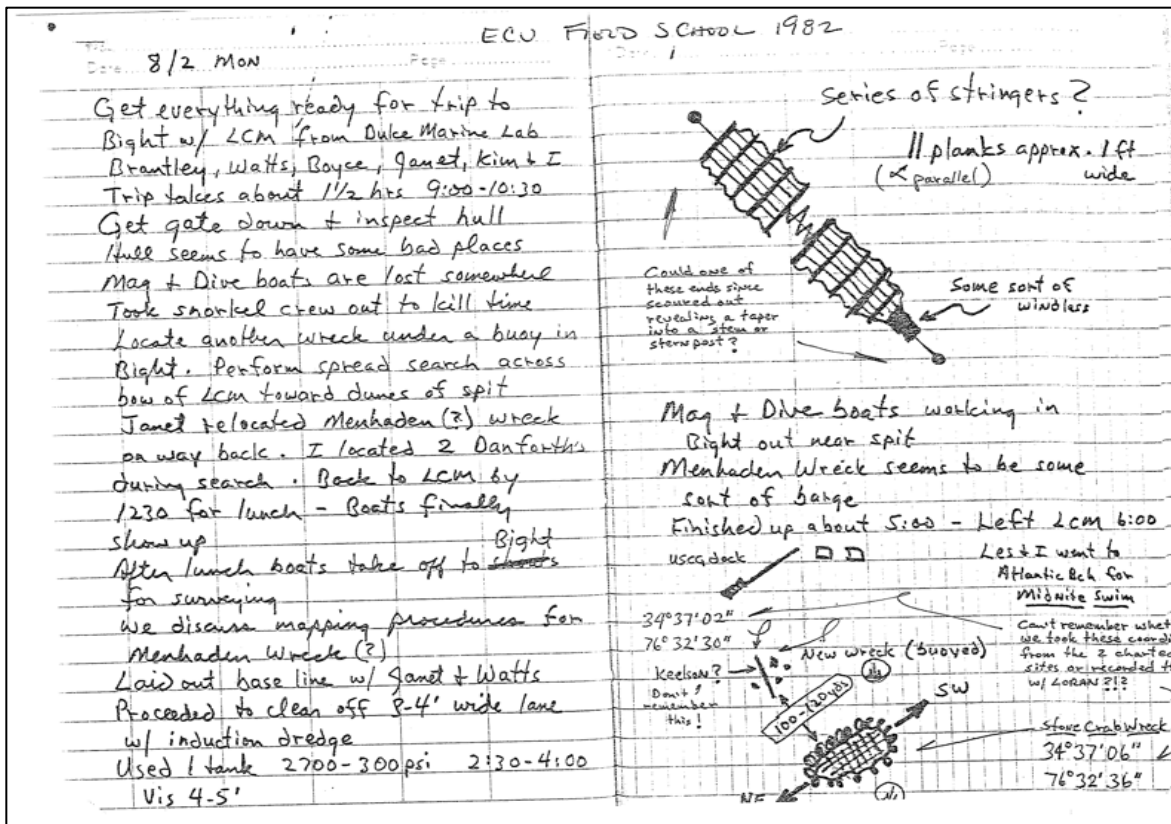 ECU FIELD SCHOOL 1982
Date Page
8/2 MON
Get everything ready for trip to
Bight w/ LCM from Duke Marine Lab
Brantley, Watts, Boyce, Janet, Kim & I
Trip takes about 1½ hrs 9:00-10:30
Get gate down & inspect hull
Hull seems to have some bad places
Mag & Dive boats are lost somewhere
Took snorkel crew out to kill time
Locate another wreck under a buoy in
Bight. Perform spread search across
bow of LCM toward dunes of spit
Janet relocated Menhaden (?) wreck
on way back. I located 2 Danforth's
during search. Back to LCM by
1230 for lunch - Boats finally
show up
Bight
After lunch boats take off to
for surveying
We discuss mapping procedures for
Menhaden Wreck (?)
Laid out base line w/ Janet & Watts
Proceeded to clean off 3-4' wide lane
w/ induction dredge
Used 1 tank 2700-300 psi 2:30-4:00
Vis 4-5'
Date Page
Series of stringers?
11 planks approx. 1 ft
wide
parallel)
Could one of
these ends since
scoured out
revealing a taper
into a stem or
sternpost?
Some sort of
windless
Mag & Dive boats working in
Bight out near spit
Menhaden Wreck seems to be some
sort of barge
Finished up about 5:00 - Left LCM 6:00
USCG dock
Les & I went to
Atlantic Bch for
Midnite Swim
34°37'02"
76°32'30"
Can't remember
we took these
from the 2 charted
sites or recorded
w/ LORAN?!?
New Wreck (buoyed)
Keelson?
Don't
remember
this!
100-120yds
SW
Stone Crab Wreck
34°37'06"
76°32'36"
NE